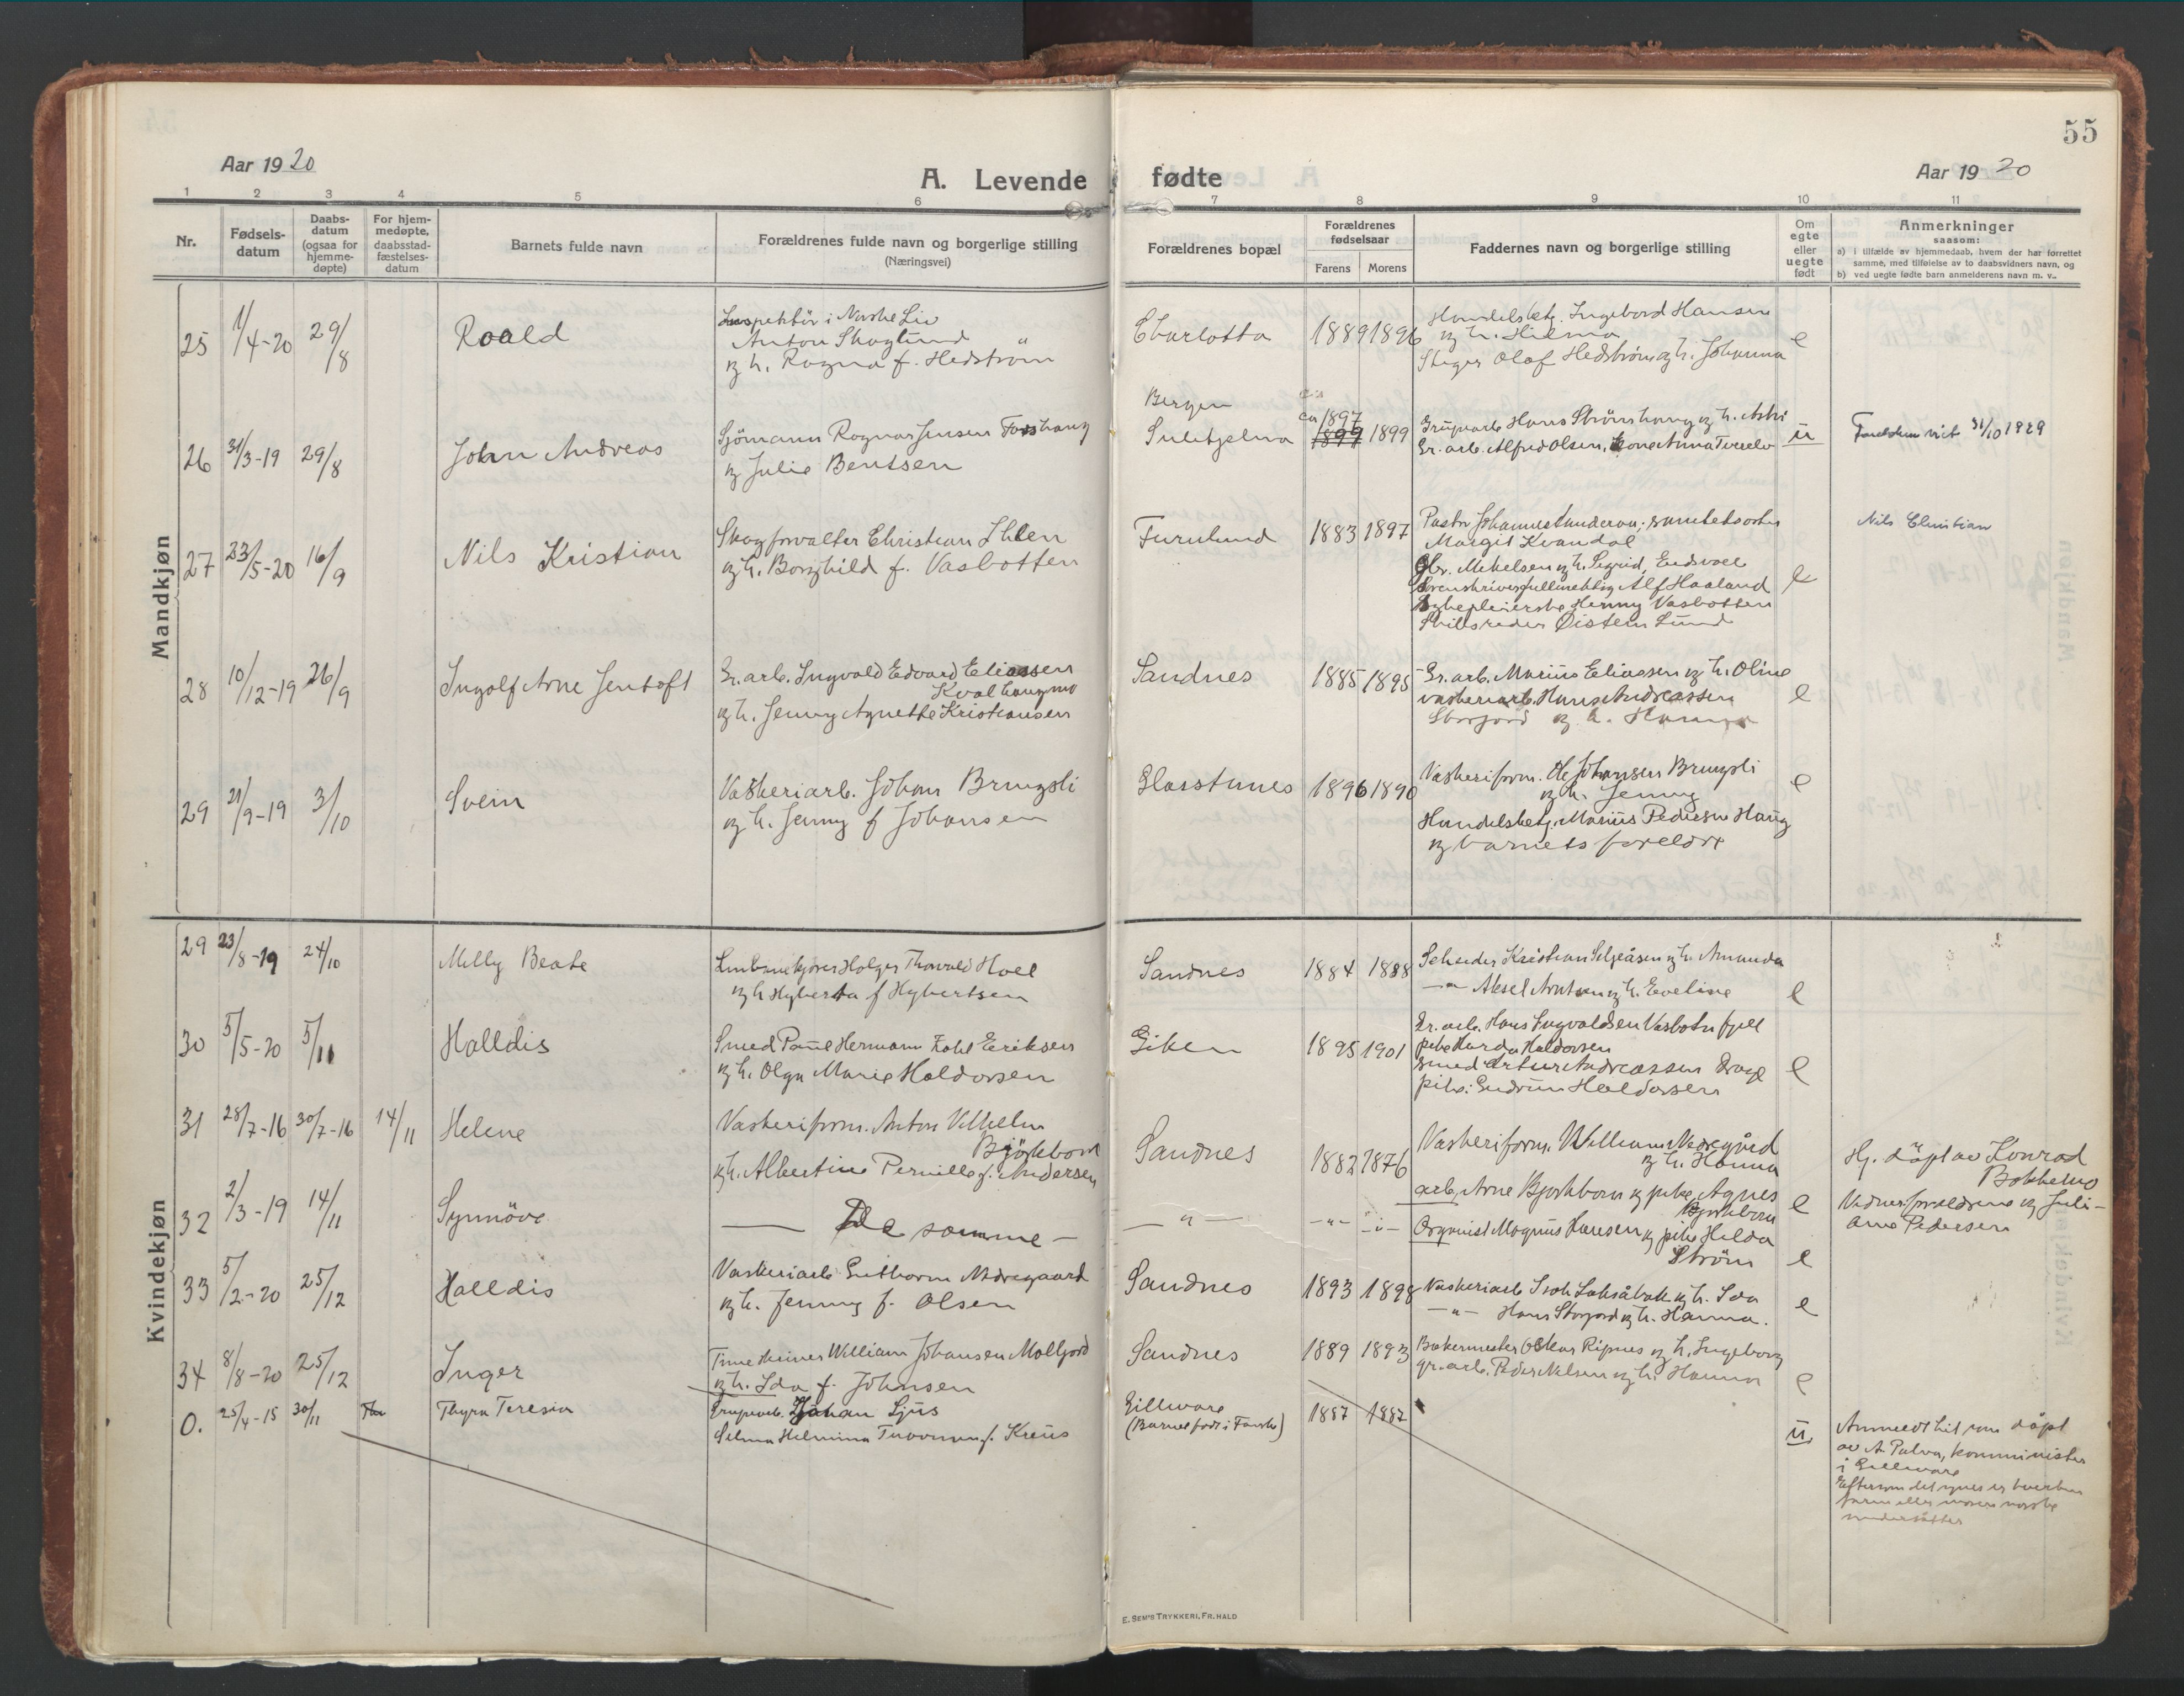 55
Aar 1920
A. Levende fødte
Aar 1920
1 2 3 4 5 6 7 8 9 10 11
Nr.
Fødsels-
datum
Daabs-
datum
(ogsaa for
hjemme-
døpte)
For hjem-
medøpte,
daabsstad-
fæstelses-
datum
Barnets fulde navn
Forældrenes fulde navn og borgerlige stilling
(Næringsvei)
Forældrenes bopæl
Forældrenes
fødselsaar
Farens Morens
Faddernes navn og borgerlige stilling
Om
egte
eller
uegte
født
Anmerkninger
saasom:
a) i tilfælde av hjemmedaab, hvem der har forrettet
samme, med tilføielse av to daabsvidners navn, og
b) ved uegte fødte barn anmelderens navn m. v..
Mandkjøn
25 1/4-20 29/8 Roald
Inspektör i Norske Liv
Anton Skoglund
og h. Ragna f. Hedström
Charlotta 1889 1896
Handelsbetj. Ingebord Hansen
og h. Hilma
Stiger Olaf Hedström og h. Johanna
e
26 31/3-19 29/8 John Andreas
Sjömann Ragnar Jensen Forshaug
og Julie Bentsen
Bergen
Sulitjelma ca 1897 1899 1899
Gruparb Hans Strömhaug og h. Astri
Gr. arb. Alfred Olsen, kone Anna
u
31/10 1929
27 23/5-20 16/9 Nils Kristian
Skogforvalter Christian Ihlen
og h. Borghild f. Vasbotten
Furulund 1883 1897
Pastor Johannes
Margit Kvandal
Mikelsen og h. Sigrid, Eidsvoll
Sorenskriverfullmektig Alf Haaland
Sykepleierske Henny Vasbotten
Skibsreder Øistein Lund
e
Nils Christian
28 10/12-19 26/9 Ingolf Arne Jentoft
Gr. arb. Ingvald Edvard Eliassen
Kvalhaugmo
og h. Jenny Agnette Kristiansen
Sandnes 1885 1895
Gr. arb. Marius Eliassen og h. Oline
vaskeriarb. Hans Andreassen
Storjord og h. Hanna
e
29 21/9-19 3/10 Svein
Vaskeriarb. Johan Brungsli
og h. Jenny f Johansen
Glasstunes 1896 1890
Vaskeriform. Ole Johansen Brungsli
og h. Jenny
Handelsbetj. Marius Pedersen Haug
og barnets foreldre
e
Kvindekjøn
29 23/8-19 24/10 Melly Beate
Linbanekjörer Holger Thorvald Hoel
og h Hyberta f Hybertsen
Sandnes 1884 1888
Scheider Kristian Seljeåsen og h. Amanda
-"- Aksel Arntsen og h. Eveline
e
30 5/5-20 5/11 Halldis
Smed Paul Hermann Eriksen
og h. Olga Marie Haldorsen
Giken 1895 1901
Gr. arb. Hans Ingvaldsen Vasbotnfjell
pike Harda Haldorsen
Smed Artur Andreassen
pike: Gudrun Haldorsen
e
31 28/7-16 30/7-16 14/11 Helene
Vaskeriform. Anton Vilhelm
Björkborn
og h. Albertine Pernille f. Andersen
Sandnes 1882 1876
Vaskeriform. William Nedregård
og h. Hanna
arb. Arne Bjorkborn og pike Agnes
Bjorkborn
e
Hj. döpt av Konrad
Bakkemo
Vidner foreldrene og Juli-
ane Pedersen
32 2/3-19 14/11 Synnöve
— De samme —
—"— -"- -"-
Organist Magnus Hansen og pike Hilda
Ström
e
33 5/2-20 25/12 Halldis
Vaskeriarb Guthorm Nedregaard
og h. Jenny f. Olsen
Sandnes 1893 1898
Vaskeriarb Isak Laksåbak og h. Ida
-"- Hans Storjord og h. Hanna.
e
34 8/8-20 25/12 Inger
Timeskriver William Johansen Molljord
og h. Ida f. Johnsen
Sandnes 1889 1893
Bakermester Oskar Ripnes og h. Ingeborg
gr. arb. Peder Nilsen og h. Hanna
e
0. 25/4-15 30/11 Thyra Teresia
Gruparb. Johan Ljus
Selma Helmina f. Kreus
Gellivare
(Barnet födt i Fauske)
1887 1887
u.
Anmeldt hit som döpt
av A. Palva, komminister
i Gellivare
Eftersom det synes er hverken
faren eller moren norske
undersåtter
E. SEM'S TRYKKERI, FR.HALD